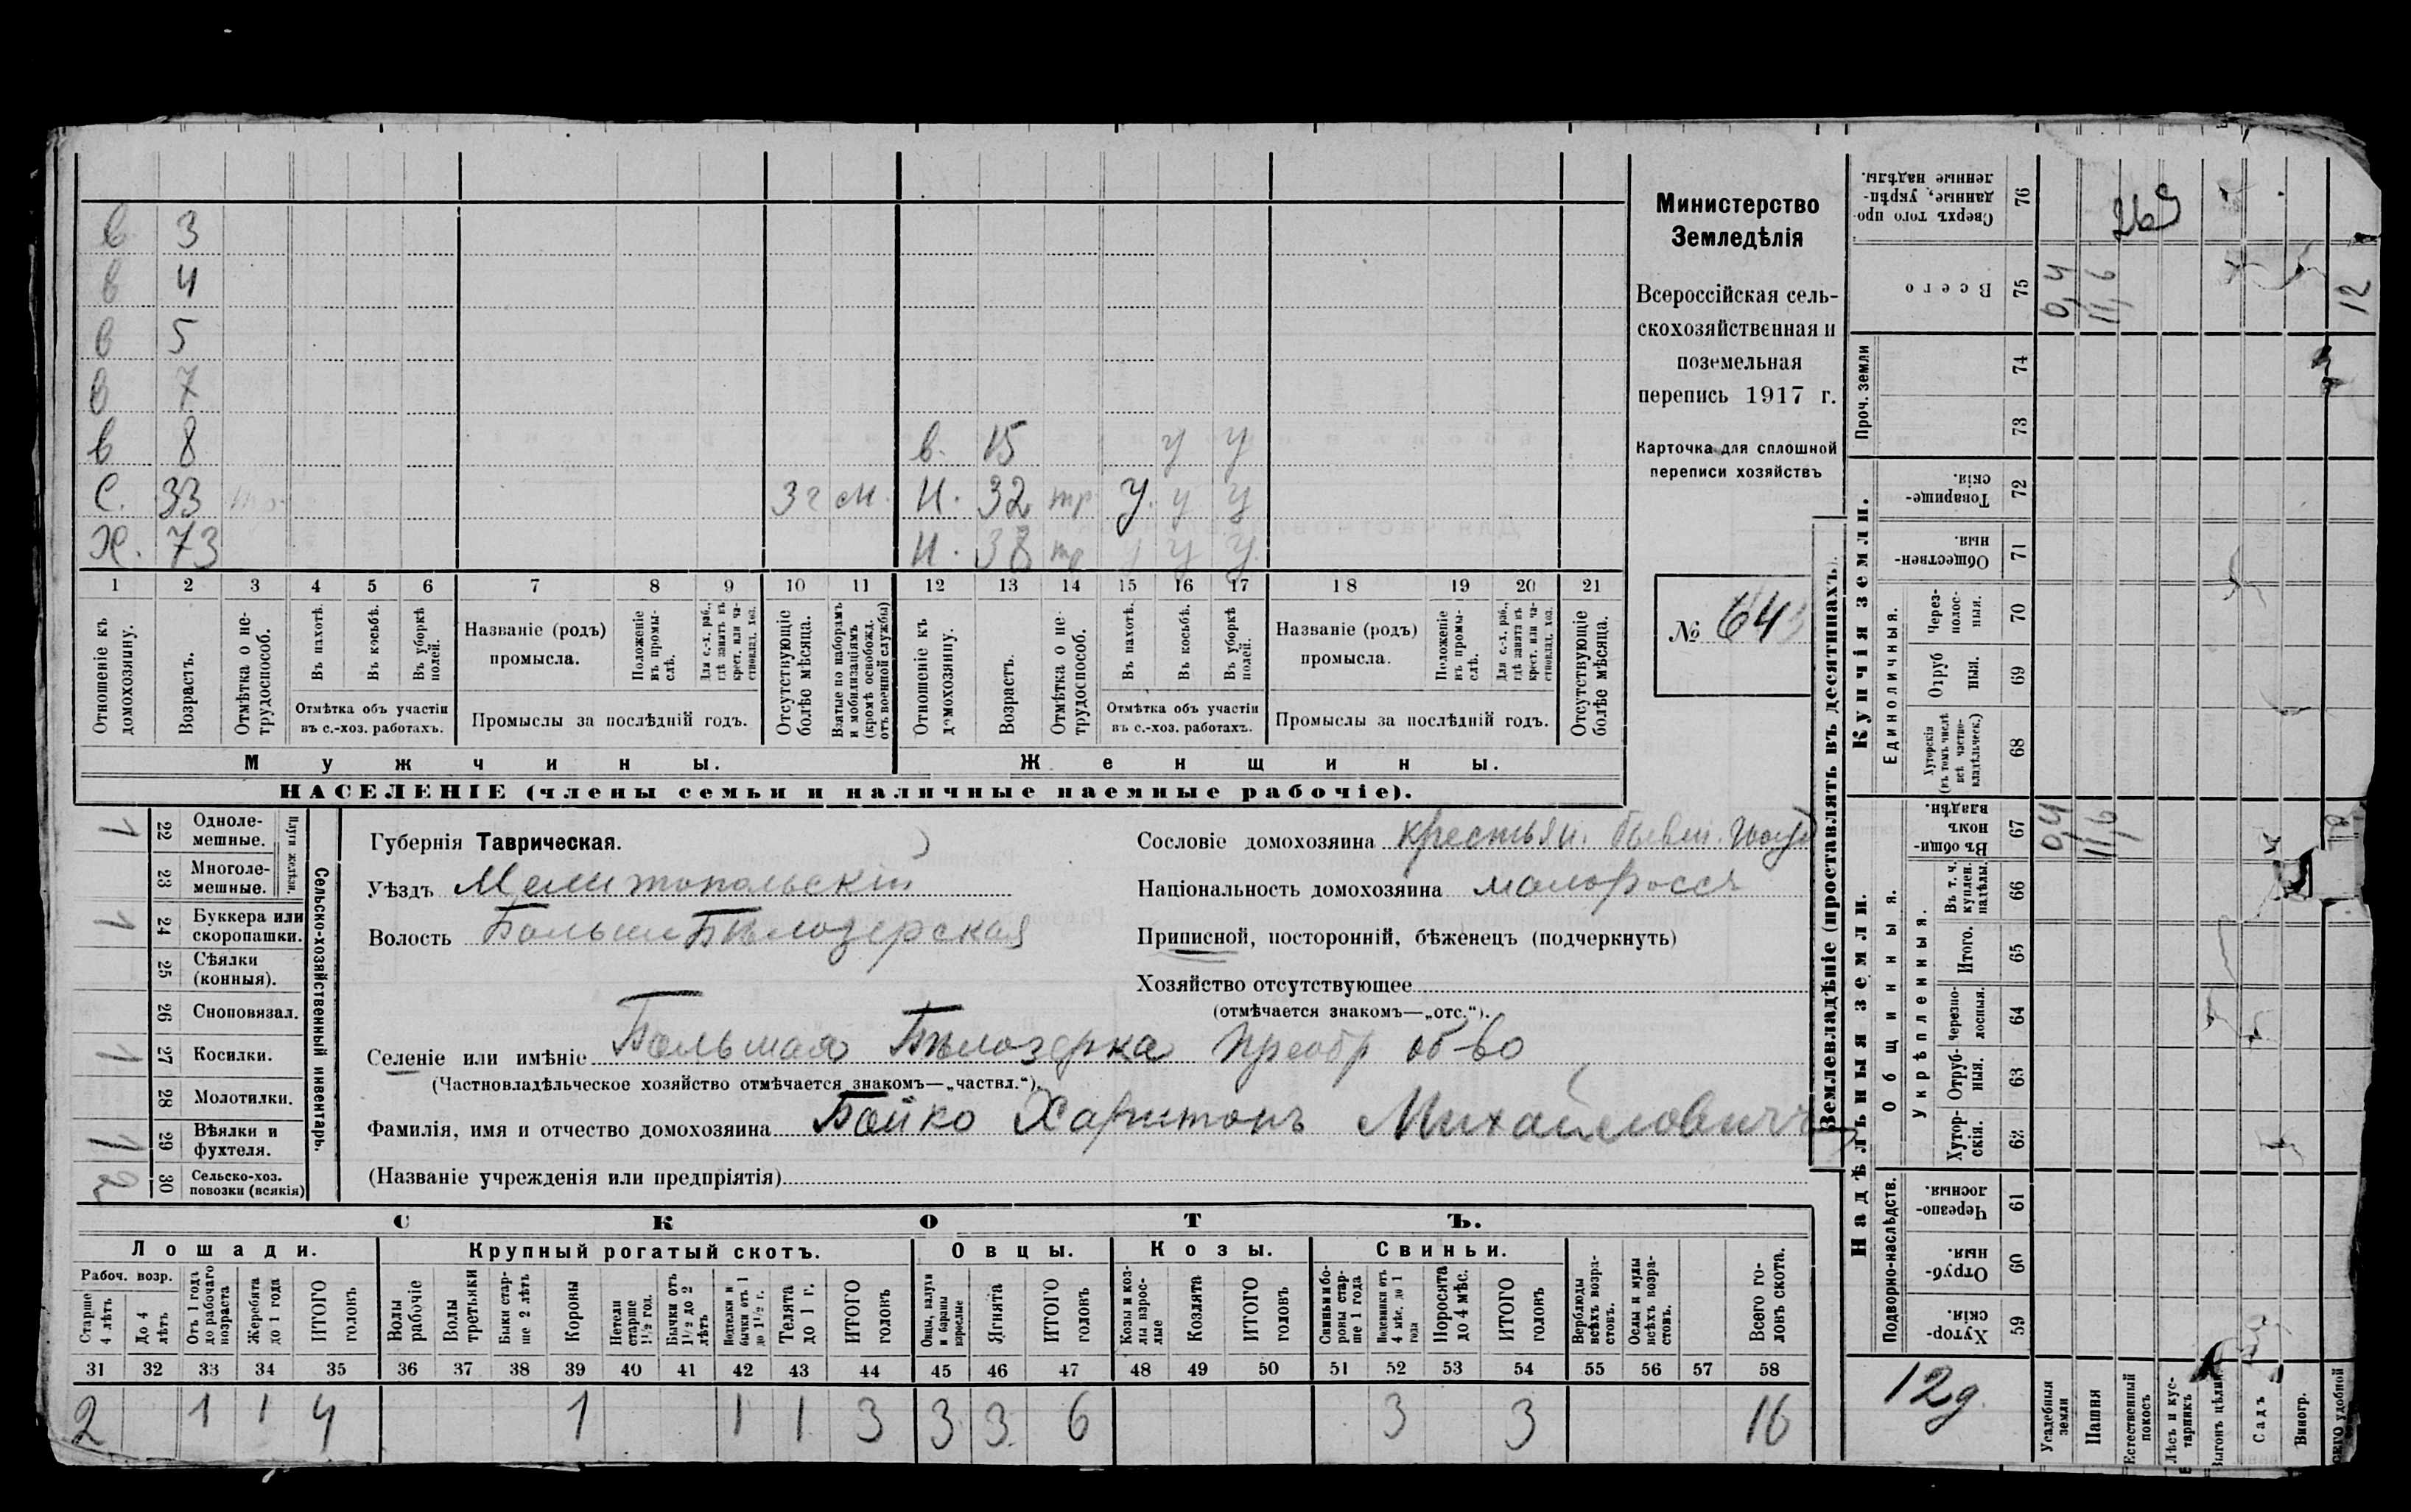 в 3
в 4
в 5
в 7
в 8 в. 15 у у
С. 33 3 г см. н. 32 тр у. у у
Х. 73 н. 38 тр у у у
1 2 3 4 5 6 7 8 9 10 11 12 13 14 15 16 17 18 19 20 21
Отношеніе къ домохозяину.
Возрастъ.
Отмѣтка о нетрудоспособ.
Въ пахотѣ.
Въ косьбѣ.
Въ уборкѣ полей.
Отмѣтка объ участіи въ с.-хоз. работахъ.
Названіе (родъ) промысла.
Положеніе въ промыслѣ.
Для с.-х. раб., гдѣ занятъ въ крест. или частновлад. хоз.
Промыслы за послѣдній годъ.
Отсутствующіе болѣе мѣсяца.
Взятые по наборамъ и мобилизаціямъ (кромѣ освобожд. отъ военной службы)
Отношеніе къ домохозяину.
Возрастъ.
Отмѣтка о нетрудоспособ.
Въ пахотѣ.
Въ косьбѣ.
Въ уборкѣ полей.
Отмѣтка объ участіи въ с.-хоз. работахъ.
Названіе (родъ) промысла.
Положеніе въ промыслѣ.
Для с.-х. раб., гдѣ занята въ крест. или частновлад. хоз.
Промыслы за послѣдній годъ.
Отсутствующіе болѣе мѣсяца.
Мужчины. Женщины.
НАСЕЛЕНІЕ (члены семьи и наличные наемные рабочіе).
Министерство
Земледѣлія
Всероссійская сель-
скохозяйственная и
поземельная
перепись 1917 г.
Карточка для сплошной
переписи хозяйствъ
№ 643
Сельско-хозяйственный инвентарь.
Плуги желѣзн.
1 22 Однолемешные.
23 Многолемешные.
1 24 Буккера или скоропашки.
25 Сѣялки (конныя).
26 Сноповязал.
1 27 Косилки.
28 Молотилки.
1 29 Вѣялки и фухтеля.
2 30 Сельско-хоз. повозки (всякія)
Губернія Таврическая.
Уѣздъ Мелитопольскій
Волость Больше Бѣлозерская
Сословіе домохозяина крестьян. бывш.
Національность домохозяина малороссъ
Приписной, посторонній, бѣженецъ (подчеркнуть)
Хозяйство отсутствующее
(отмѣчается знакомъ—„отс.“).
Селеніе или имѣніе Большая Бѣлозерка Преобр об-во
(Частновладѣльческое хозяйство отмѣчается знакомъ—„частвл.“).
Фамилія, имя и отчество домохозяина Бойко Харитонъ Михайловичъ
(Названіе учрежденія или предпріятія)
СКОТЪ.
Лошади. Крупный рогатый скотъ. Овцы. Козы. Свиньи.
Рабоч. возр.
Старше 4 лѣтъ
До 4 лѣтъ
Отъ 1 года до рабочаго возраста
Жеребята до 1 года
ИТОГО головъ
Волы рабочіе
Волы третьяки
Быки старше 2 лѣтъ
Коровы
Нетели старше 1½ год.
Бычки отъ 1½ до 2 лѣтъ
Нетели и бычки отъ 1 до 1½ г.
Телята до 1 г.
ИТОГО головъ
Овцы, валухи и бараны взрослые
Ягнята
ИТОГО головъ
Козы и козлы взрослые
Козлята
ИТОГО головъ
Свиньи и боровы старше 1 года
Подсвинки отъ 4 мѣс. до 1 года
Поросята до 4 мѣс.
ИТОГО головъ
Верблюды всѣхъ возрастовъ.
Ослы и мулы всѣхъ возрастовъ.
Всего головъ скота.
31 32 33 34 35 36 37 38 39 40 41 42 43 44 45 46 47 48 49 50 51 52 53 54 55 56 57 58
2 1 1 4 1 1 1 3 3 3 6 3 3 16
Землевладѣніе (проставлять въ десятинахъ).
Надѣльныя земли. Купчія земли. Проч. земли
Подворно-наслѣдств.
Общинныя.
Укрѣпленныя.
Единоличныя.
Сверхъ того проданные, укрѣпленные надѣлы. 76
Всего 75 0,4 11,6 12
74
73
Товарищескія. 72
Общественныя. 71
Черезполосныя. 70
Отрубныя. 69
Хуторскія (въ томъ числѣ всѣ частновладѣльческ.) 68
Въ общинномъ владѣн. 67 0,4 11,6
Въ т. ч. куплен. надѣлы. 66
Итого. 65
Черезполосныя. 64
Отрубныя. 63
Хуторскія. 62
Черезполосныя. 61
Отрубныя. 60
Хуторскія. 59
12 д.
Усадебныя земли
Пашня
Естественный покосъ
Лѣсъ и кустарникъ
Выгонъ цѣлин.
Садъ
Виногр.
удобной